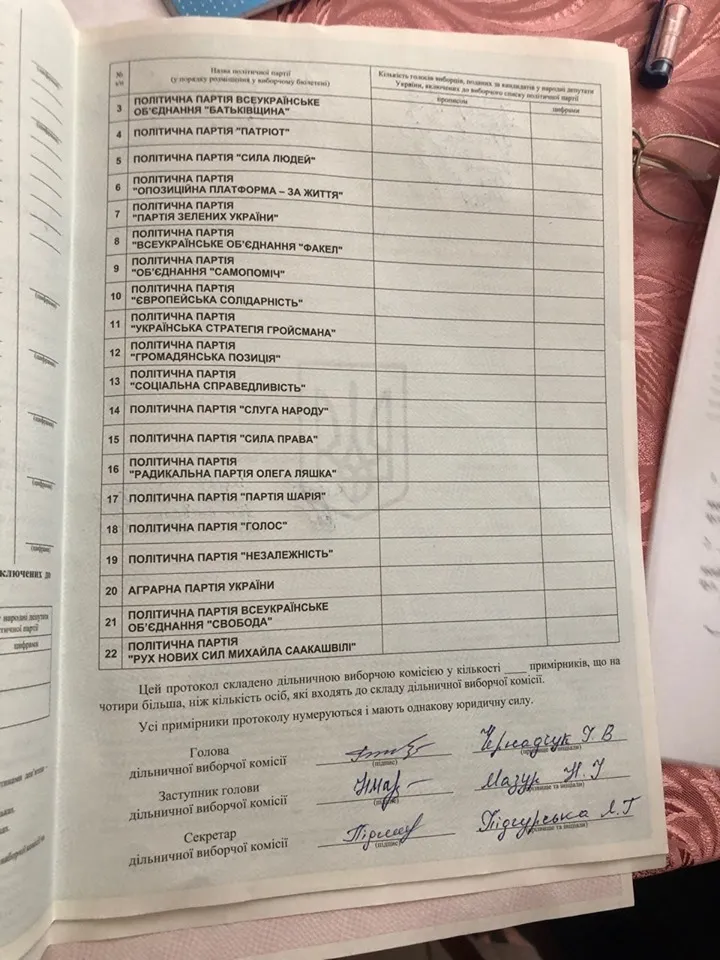 №
з/п
Назва політичної партії
(у порядку розміщення у виборчому бюлетені)
Кількість голосів виборців, поданих за кандидатів у народні депутати
України, включених до виборчого списку політичної партії
прописом
цифрами
3 ПОЛІТИЧНА ПАРТІЯ ВСЕУКРАЇНСЬКЕ
ОБ'ЄДНАННЯ "БАТЬКІВЩИНА"
4 ПОЛІТИЧНА ПАРТІЯ "ПАТРІОТ"
5 ПОЛІТИЧНА ПАРТІЯ "СИЛА ЛЮДЕЙ"
6 ПОЛІТИЧНА ПАРТІЯ
"ОПОЗИЦІЙНА ПЛАТФОРМА – ЗА ЖИТТЯ"
7 ПОЛІТИЧНА ПАРТІЯ
"ПАРТІЯ ЗЕЛЕНИХ УКРАЇНИ"
8 ПОЛІТИЧНА ПАРТІЯ
"ВСЕУКРАЇНСЬКЕ ОБ'ЄДНАННЯ "ФАКЕЛ"
9 ПОЛІТИЧНА ПАРТІЯ
"ОБ'ЄДНАННЯ "САМОПОМІЧ"
10 ПОЛІТИЧНА ПАРТІЯ
"ЄВРОПЕЙСЬКА СОЛІДАРНІСТЬ"
11 ПОЛІТИЧНА ПАРТІЯ
"УКРАЇНСЬКА СТРАТЕГІЯ ГРОЙСМАНА"
12 ПОЛІТИЧНА ПАРТІЯ
"ГРОМАДЯНСЬКА ПОЗИЦІЯ"
13 ПОЛІТИЧНА ПАРТІЯ
"СОЦІАЛЬНА СПРАВЕДЛИВІСТЬ"
14 ПОЛІТИЧНА ПАРТІЯ "СЛУГА НАРОДУ"
15 ПОЛІТИЧНА ПАРТІЯ "СИЛА ПРАВА"
16 ПОЛІТИЧНА ПАРТІЯ
"РАДИКАЛЬНА ПАРТІЯ ОЛЕГА ЛЯШКА"
17 ПОЛІТИЧНА ПАРТІЯ "ПАРТІЯ ШАРІЯ"
18 ПОЛІТИЧНА ПАРТІЯ "ГОЛОС"
19 ПОЛІТИЧНА ПАРТІЯ "НЕЗАЛЕЖНІСТЬ"
20 АГРАРНА ПАРТІЯ УКРАЇНИ
21 ПОЛІТИЧНА ПАРТІЯ ВСЕУКРАЇНСЬКЕ
ОБ'ЄДНАННЯ "СВОБОДА"
22 ПОЛІТИЧНА ПАРТІЯ
"РУХ НОВИХ СИЛ МИХАЙЛА СААКАШВІЛІ"
Цей протокол складено дільничною виборчою комісією у кількості ____ примірників, що на
чотири більша, ніж кількість осіб, які входять до складу дільничної виборчої комісії.
Усі примірники протоколу нумеруються і мають однакову юридичну силу.
Голова
дільничної виборчої комісії
(підпис)
Заступник голови
дільничної виборчої комісії
Мазур Н. І
Секретар
дільничної виборчої комісії
(підпис)
Підгурська Л. Г